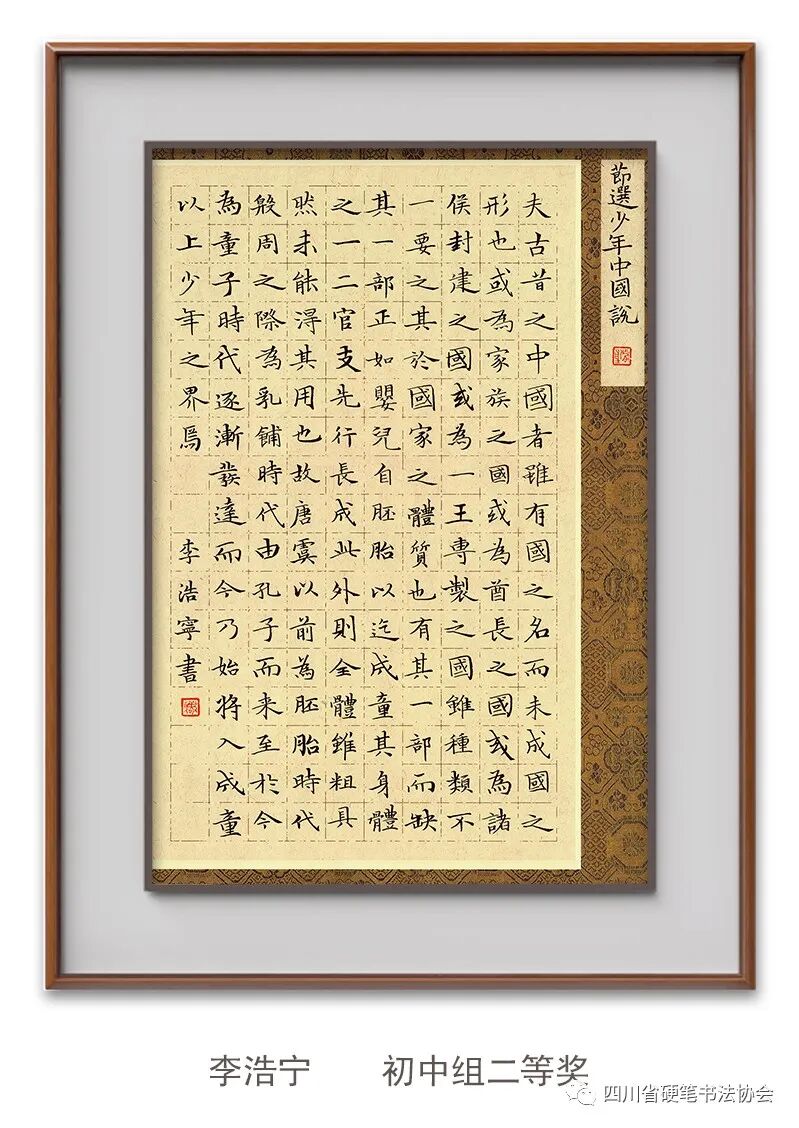 節選少年中國說
夫古昔之中國者雖有國之名而未成國之
形也或為家族之國或為酋長之國或為諸
侯封建之國或為一王專製之國雖種類不
一要之其於國家之體質也有其一部而缺
其一部正如嬰兒自胚胎以迄成童其身體
之一二官支先行長成此外則全體雖粗具
然未能得其用也故唐虞以前為胚胎時代
殷周之際為乳餔時代由孔子而来至於今
為童子時代逐漸發達而今乃始將入成童
以上少年之界焉
李浩寧書
李浩宁 初中组二等奖
四川省硬笔书法协会